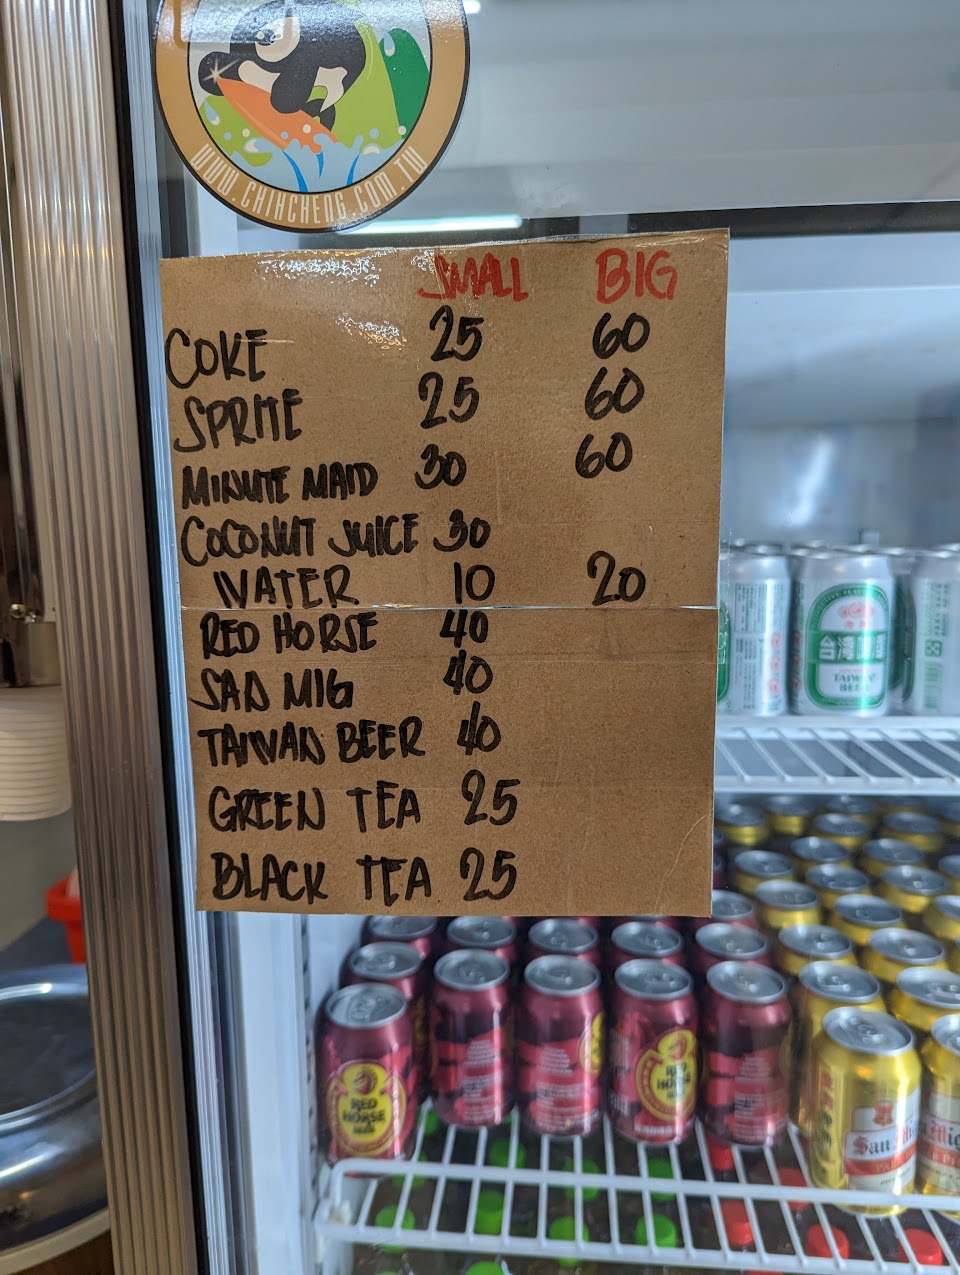 WWW.CHIHCHENG.COM.TW
SMALL BIG
COKE 25 60
SPRITE 25 60
MINUTE MAID 30 60
COCONUT JUICE 30
WATER 10 20
RED HORSE 40
SAN MIG 40
TAIWAN BEER 40
GREEN TEA 25
BLACK TEA 25
台灣
TAIWAN
BEER
RED
HORSE
RED
HORSE
San Mig